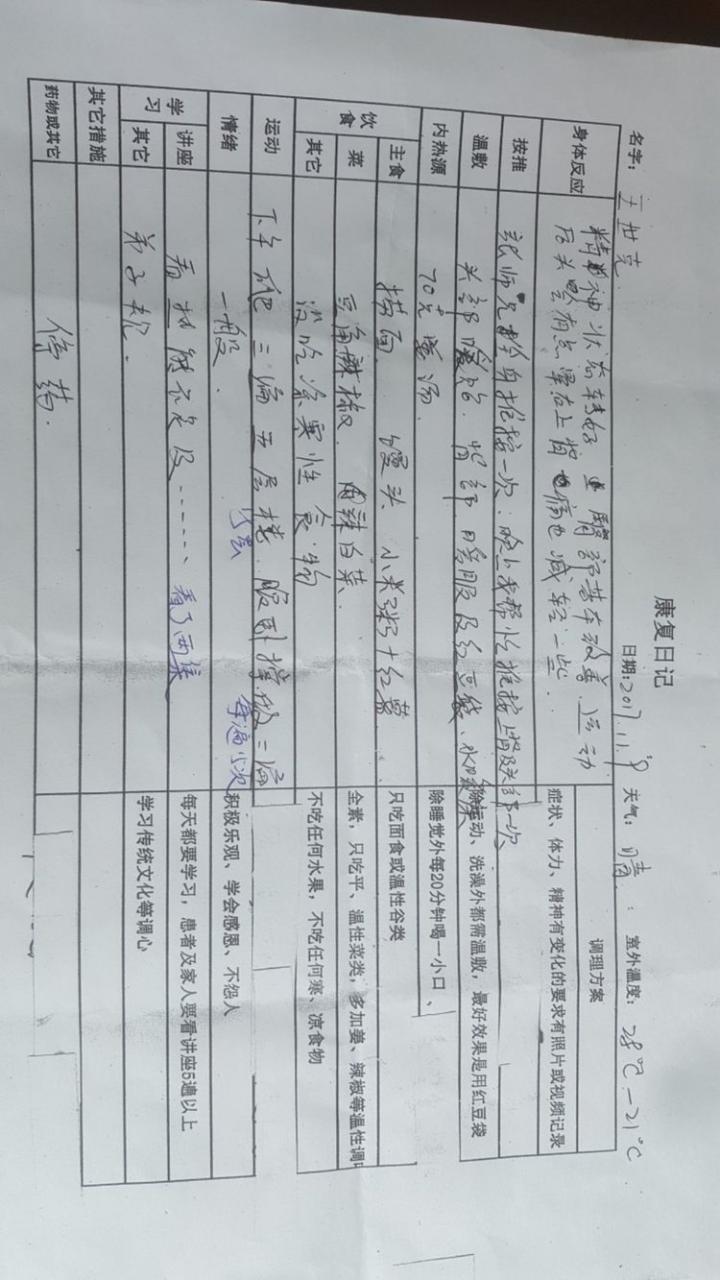 康复日记
名字：王世克 日期：2017.11.9 天气：晴 室外温度：28℃—21℃
身体反应 精神状态转好
后头晕有点晕右上背也痛也减轻一些．
调理方案
症状、体力、精神有变化的要求有照片或视频记录
按推 张师兄整身推按一次；晚上我帮忙推按上背及头部一次
温敷 头部暖贴．背部 及红豆袋、水暖
除运动、洗澡外都需温敷，最好效果是用红豆袋
内热源 70克姜汤． 除睡觉外每20分钟喝一小口、
饮食 主食 捞面 馒头 小米粥+红薯 只吃面食或温性谷类
菜 豆角辣椒． 白菜、 全素，只吃平、温性菜类，多加姜、辣椒等温性调
其它 没吃凉寒性食物 不吃任何水果，不吃任何寒、凉食物
运动 下午爬二遍五层楼 二遍
每遍 次
情绪 一般． 积极乐观、学会感恩、不怨人
学习 讲座 看 ……、看了两集 每天都要学习，患者及家人要看讲座5遍以上
其它 弟子规． 学习传统文化等调心
其它措施
药物或其它 停药．